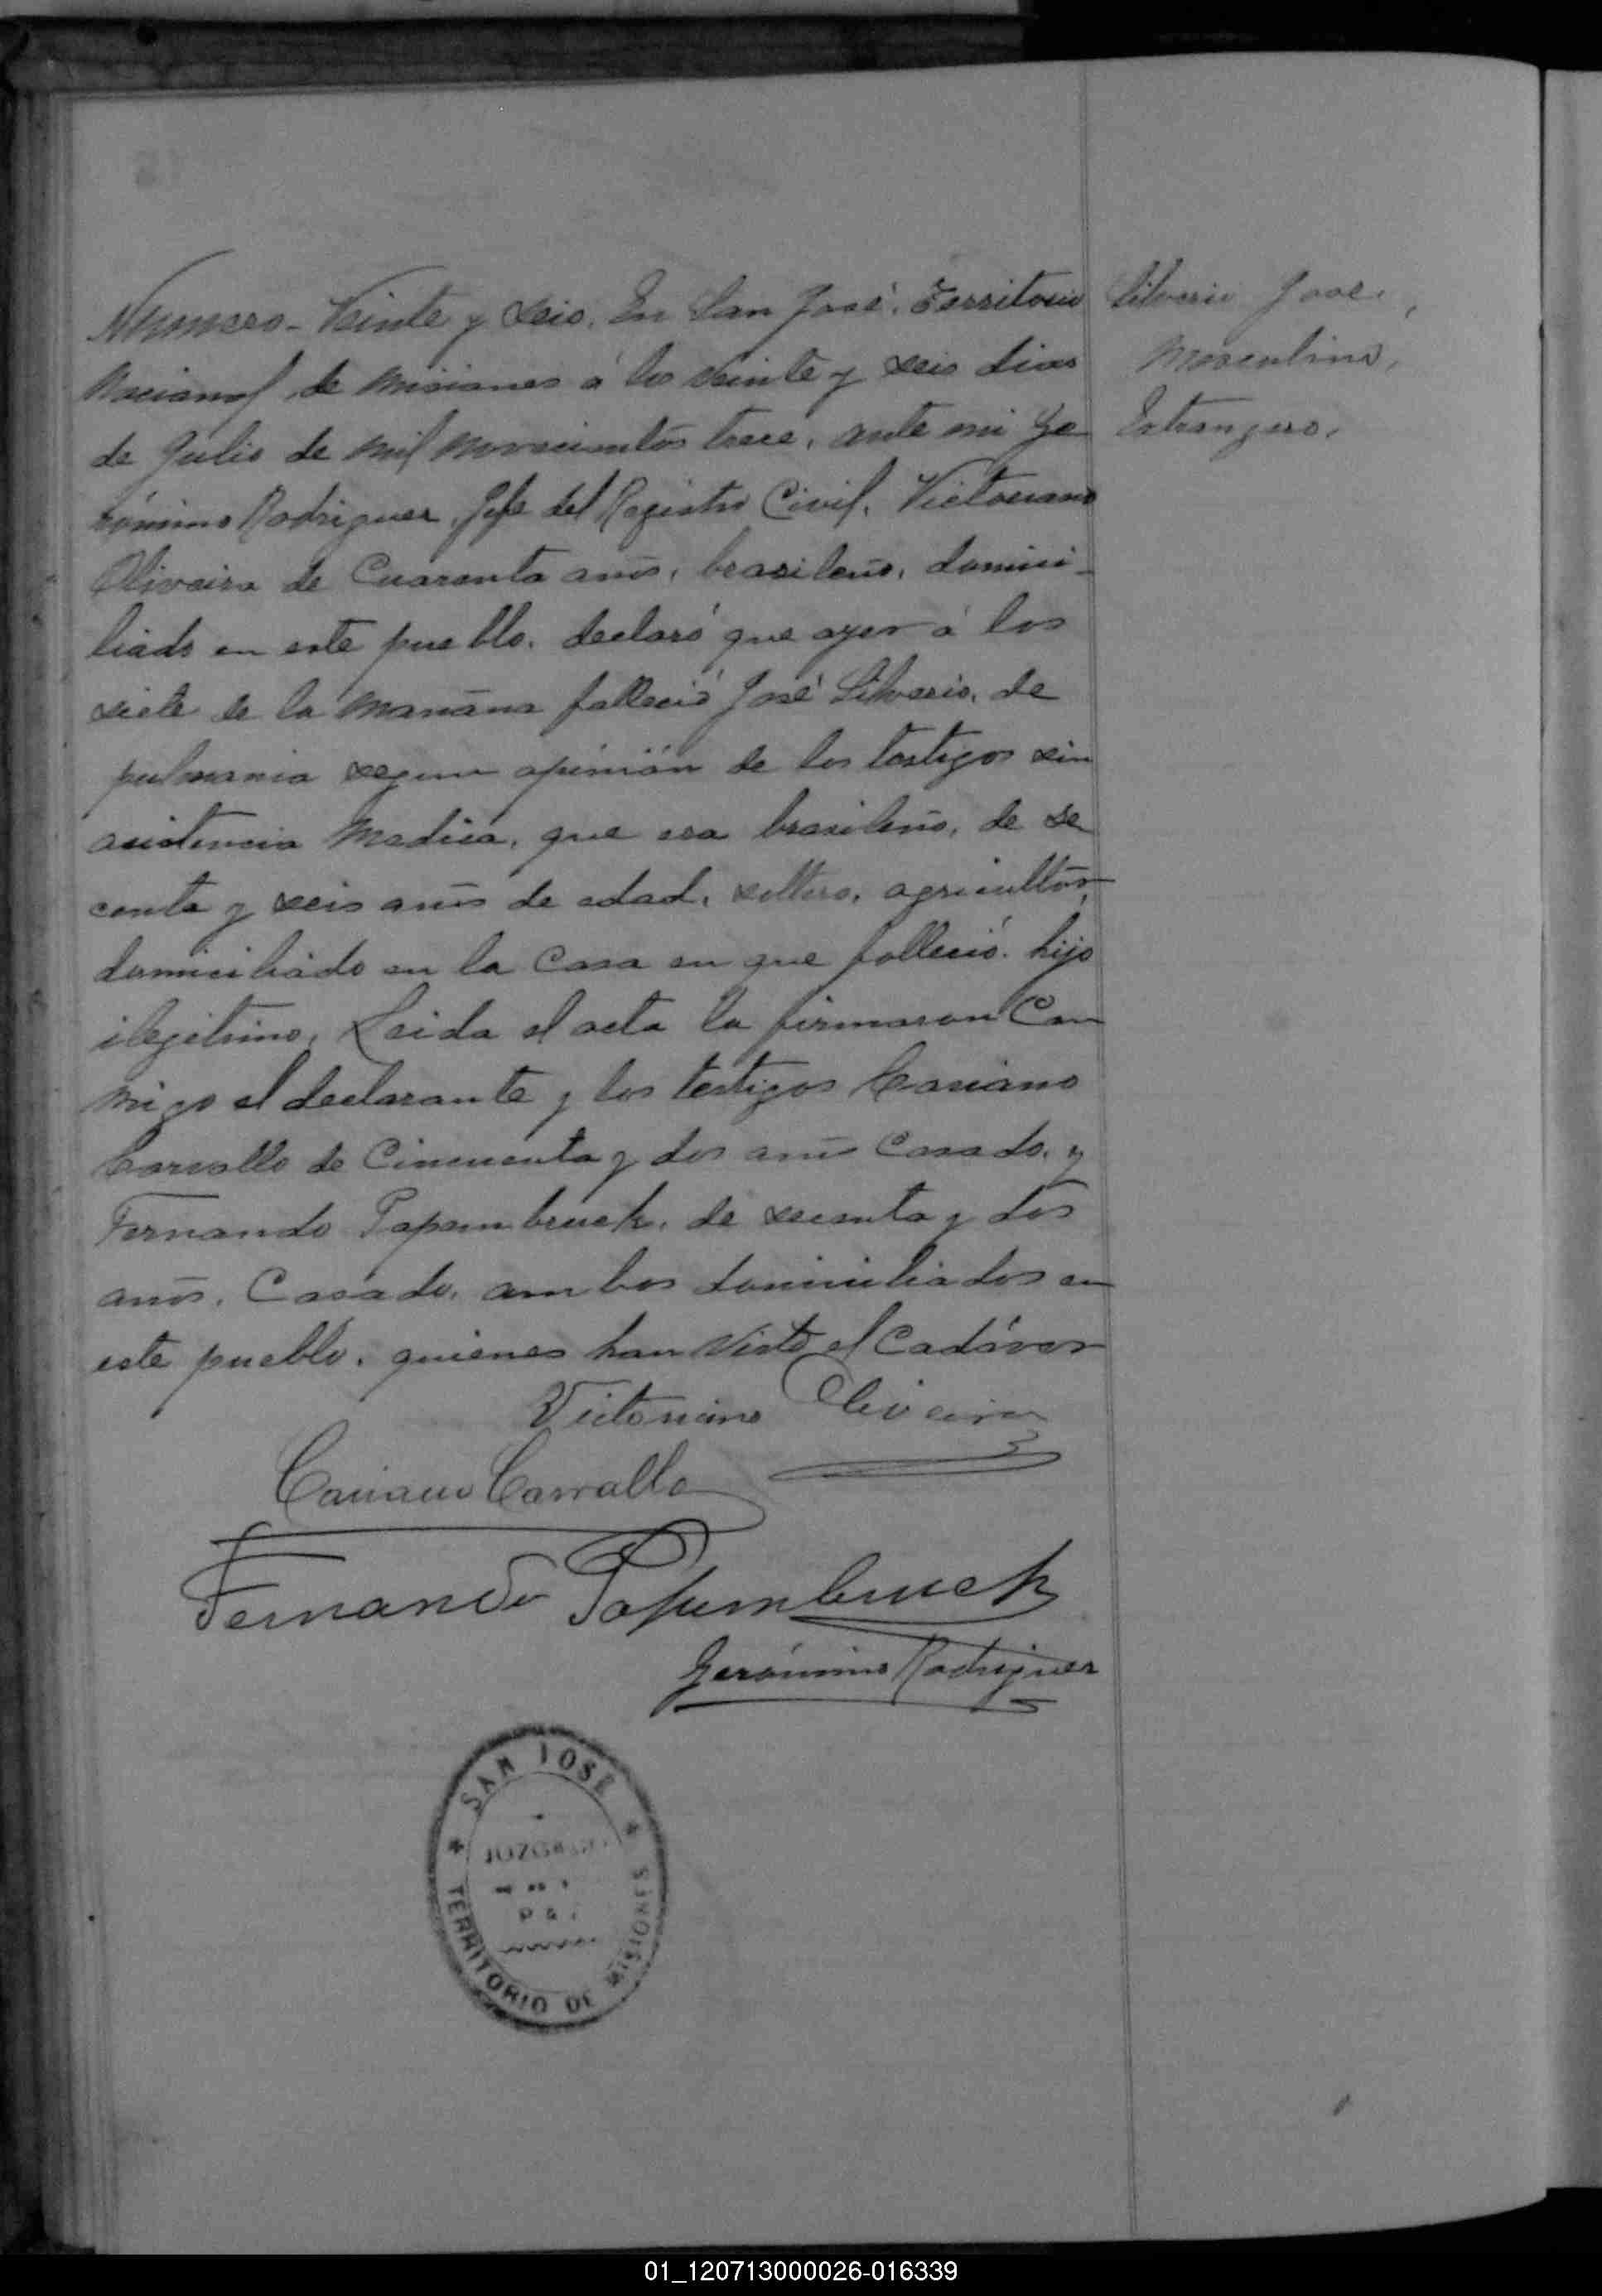 Número - Veinte y seis. En San José, Territorio
Nacional de Misiones á los veinte y seis dias
de Julio de mil novecientos trece, ante mi Ge
rónimo Rodriguez, Jefe del Registro Civil, Victoriano
Oliveira de Cuarenta años, brasileño, domici-
liado en este pueblo, declaró que ayer á las
siete de la mañana falleció José Silverio, de
pulmonia segun opinión de los testigos sin
asistencia Medica, que era brasileño, de se
centa y seis años de edad, soltero, agricultor,
domiciliado en la casa en que falleció. hijo
ilegitimo, Leida el acta la firmaron Con
migo el declarante y los testigos Casiano
Carvallo de Cincuenta y dos años Casado, y
Fernando Papembruck, de secenta y dos
años, Casado, ambos domiciliados en
este pueblo, quienes han visto el Cadáver
Victoriano Oliveira
Casiano Carvallo
Fernando Papembruck
Gerónimo Rodriguez
Silverio José,
Masculino,
Estrangero.
SAN JOSE
JUZGADO
DE
PAZ
TERRITORIO DE MISIONES
01_120713000026-016339